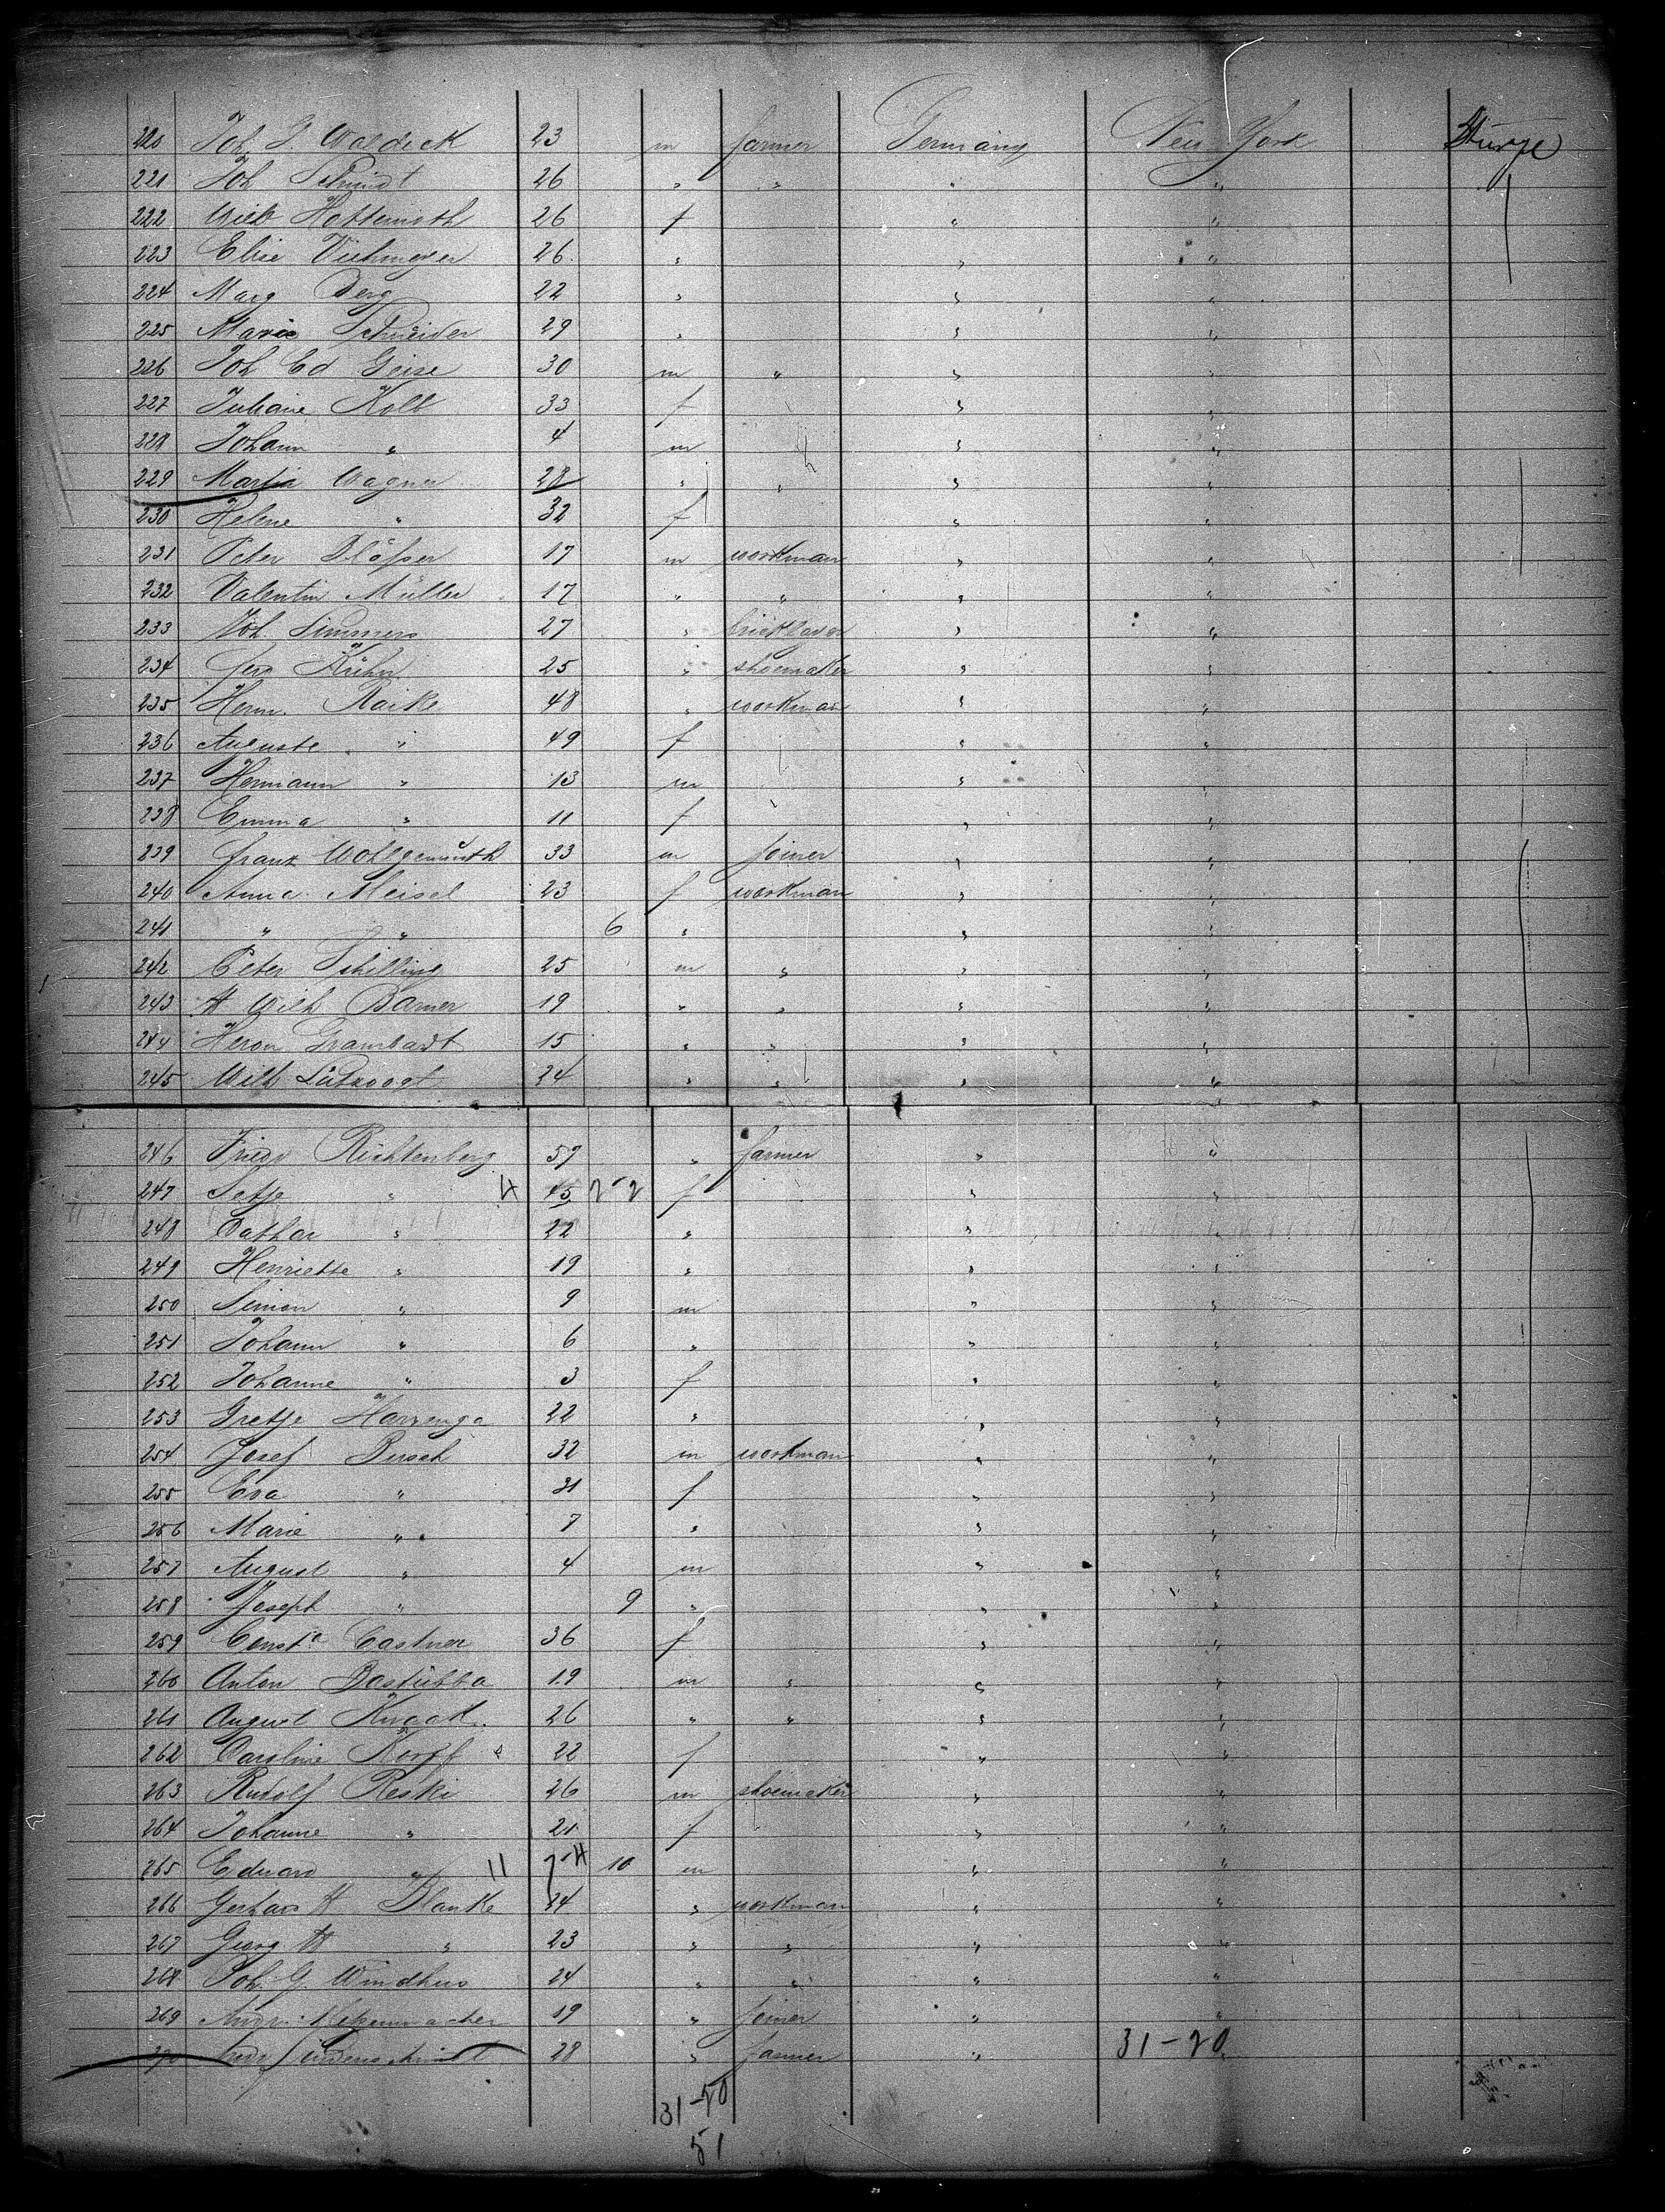 220 Joh. G. Waldeck 23 m farmer Germany New York Steerage
221 Joh Schmidt 26 " " " "
222 Wilh Hottenroth 26 f " "
223 Elise Viehmeyer 26 " " "
224 Marg Derg 22 " " "
225 Marie Schneider 29 " " "
226 Joh Ed Geise 30 m " " "
227 Juliane Kolb 33 f " "
228 Johann " 4 m " "
229 Martin Wagner 28 " " " "
230 Helene " 32 f " "
231 Peter 17 m workman " "
232 Valentin Müller 17 " " " "
233 Joh Simmers 27 " bricklayer " "
234 Kühn 25 " shoemaker " "
235 Herm. Raike 48 " workman " "
236 Auguste " 49 f " "
237 Hermann " 13 m " "
238 Emma " 11 f " "
239 Franz Wohlgemuth 33 m joiner " "
240 Anna Meisel 23 f workman " "
241 " " 6 " " "
242 Peter Schilling 25 m " " "
243 H Wilh Barner 19 " " " "
244 Grambart 15 " " " "
245 Wilh 24 " " " "
246 Friedr Richtenberg 57 " farmer " "
247 " 45 2-2 f " "
248 Cathar " 22 " " "
249 Henriette " 19 " " "
250 Simon " 9 m " "
251 Johann " 6 " " "
252 Johanne " 3 f " "
253 Gretje Harrenga 22 " " "
254 Josef Busch 32 m workman " "
255 Eva " 31 f " "
256 Marie " 7 " " "
257 August " 4 m " "
258 Joseph " 9 " " "
259 Const.a Castner 36 f " "
260 Anton 19 m " " "
261 August Knaak 26 " " " "
262 Caroline Korff 22 f " "
263 Rudolf Reski 26 m shoemaker " "
264 Johanne " 21 f " "
265 Eduard " 11 10 m " "
266 Gerhard H Blanke 24 " workman " "
267 Georg H " 23 " " " "
268 Joh. G. Windhus 24 " " " "
269 19 " joiner " "
270 28 " farmer " 31-20
31-20
51